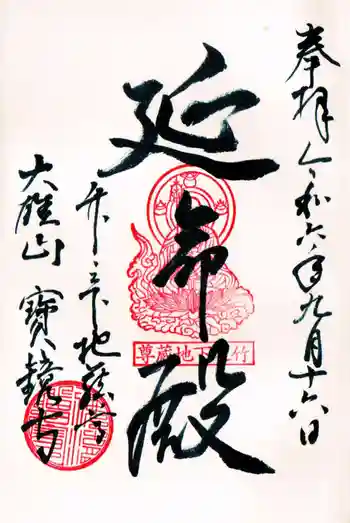 奉拝 令和六年九月十六日
延命殿
竹之下地蔵尊
竹之下地蔵尊
大雄山 寶鏡寺